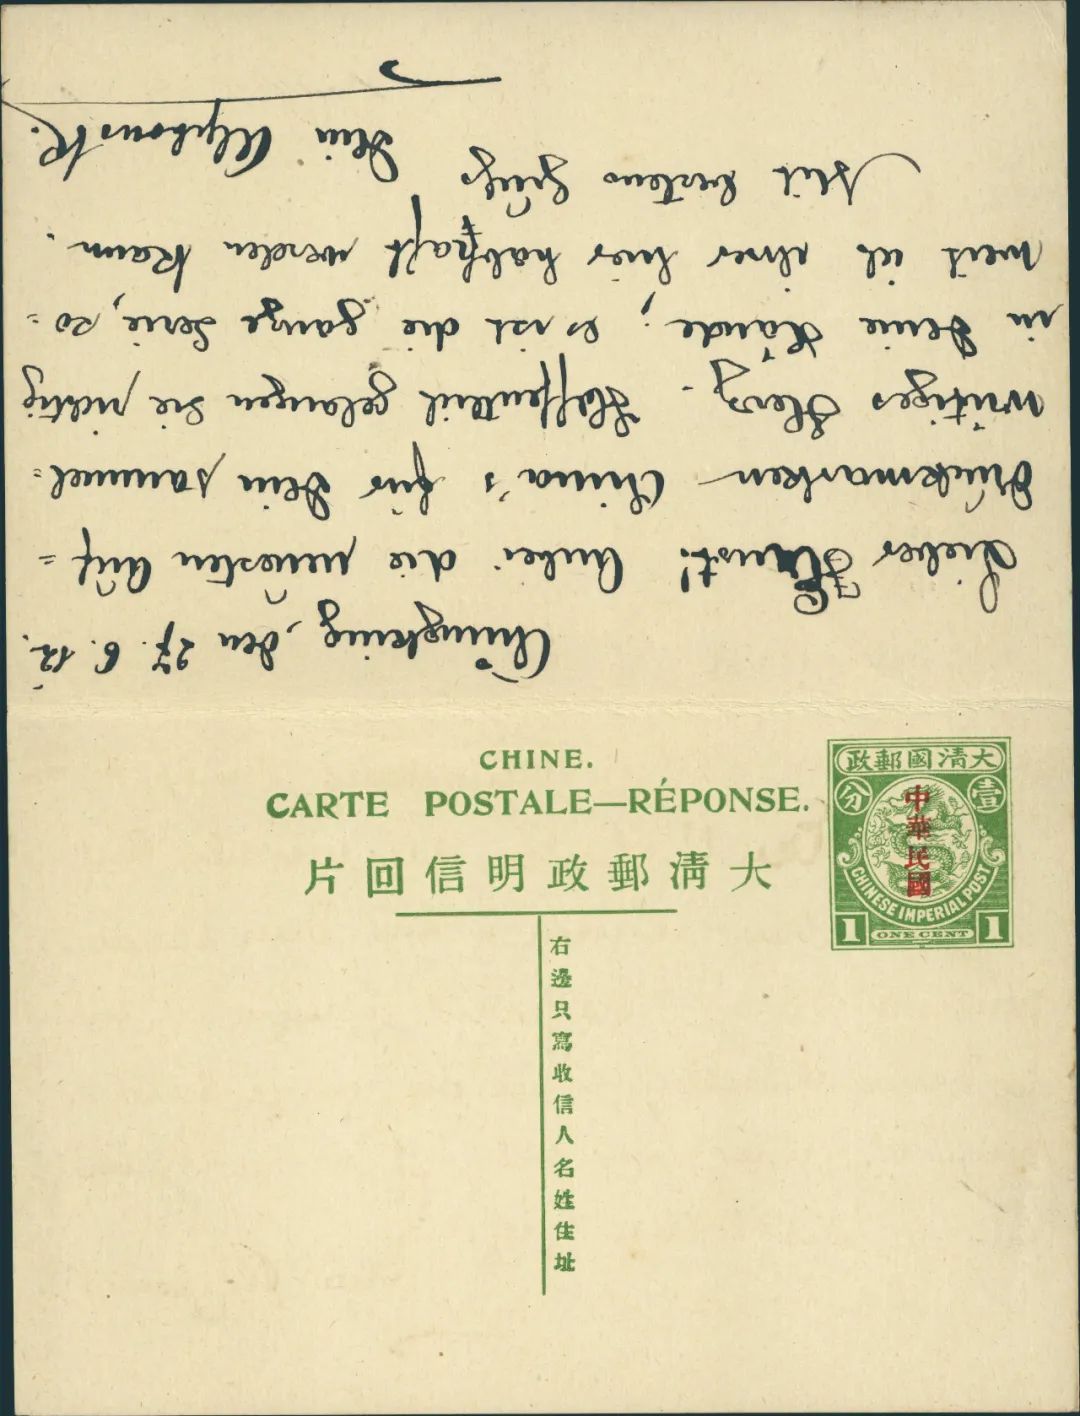 Chungking, den 27. 6. 12.
Lieber Ernst! Anbei die neuesten Auf=
druckmarken China's für Dein sammel=
wütiges Herz. Hoffentlich gelangen sie richtig
in Deine Hände; es ist die ganze Serie, so=
weit ich ihrer hier habhaft werden kann.
Mit bestens Gruß
Dein Alphons K.
CHINE.
CARTE POSTALE—RÉPONSE.
片回信明政郵清大
右邊只寫收信人名姓住址
政郵國清大
分 壹
中華民國
CHINESE IMPERIAL POST
1 ONE CENT 1